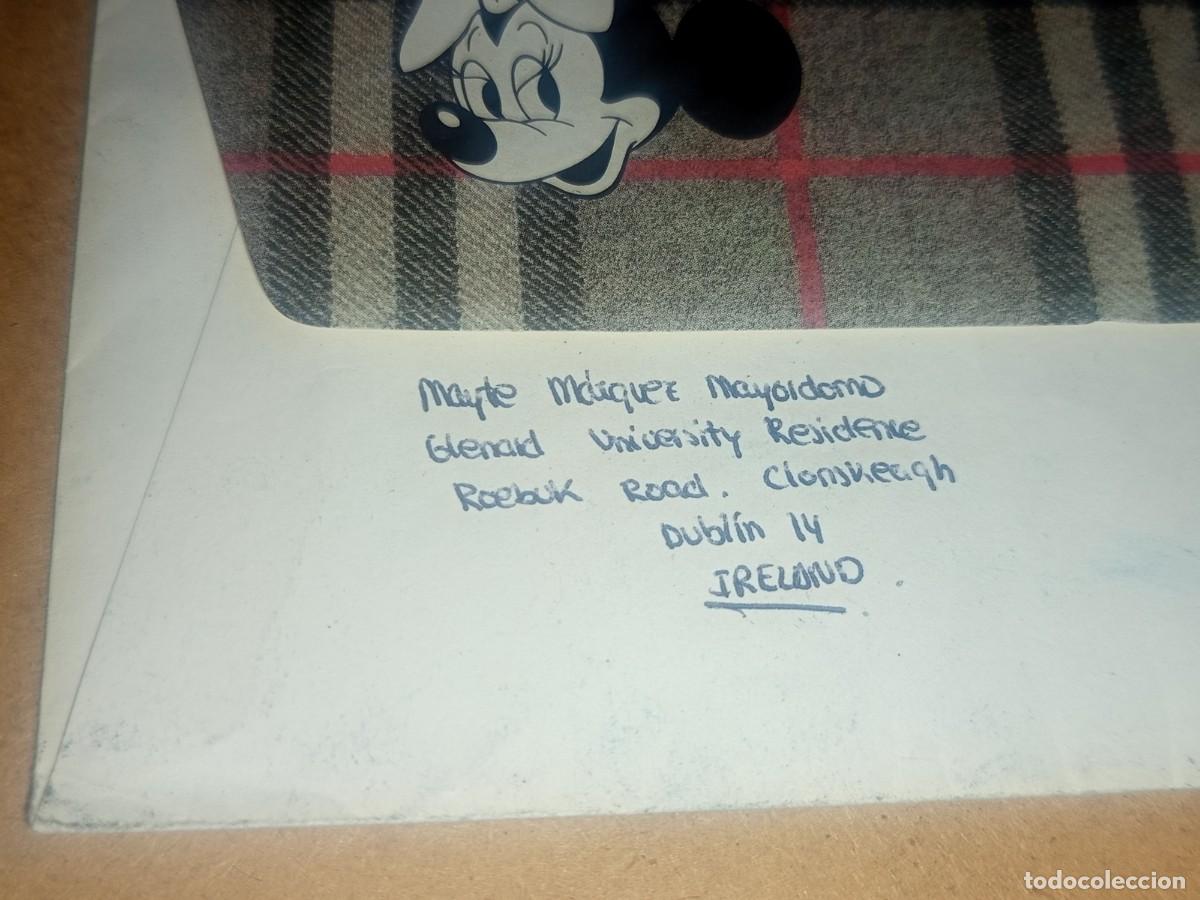 Mayte Márquez Mayordomo
Glenard University Residence
Roebuk Road. Clonskeagh
Dublín 14
IRELAND.
todocoleccion